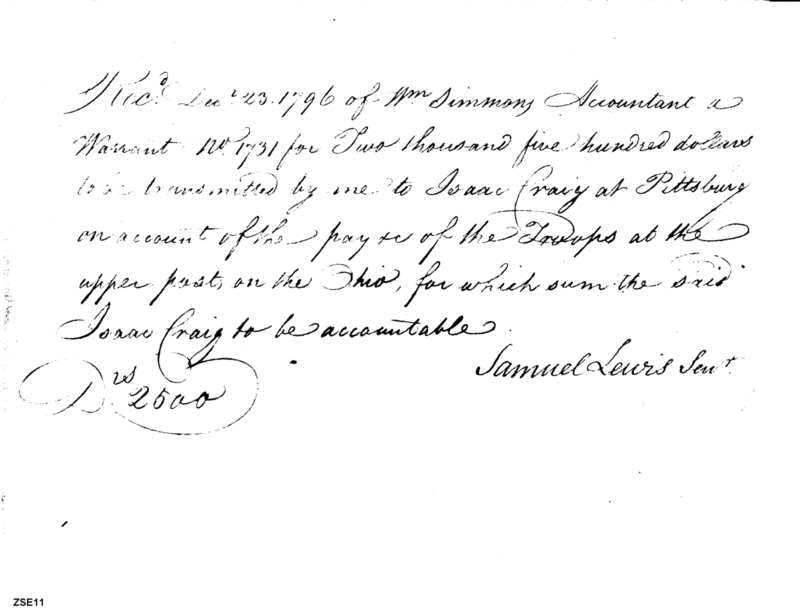 Recd Decr 23. 1796 of Wm Simmons Accountant a
Warrant No. 1731 for Two thousand five hundred dollars
to be transmitted by me to Isaac Craig at Pittsburg
on account of the pay &c of the Troops at the
upper posts on the Ohio, for which sum the said
Isaac Craig to be accountable.
Samuel Lewis Senr.
Drs 2500
ZSE11